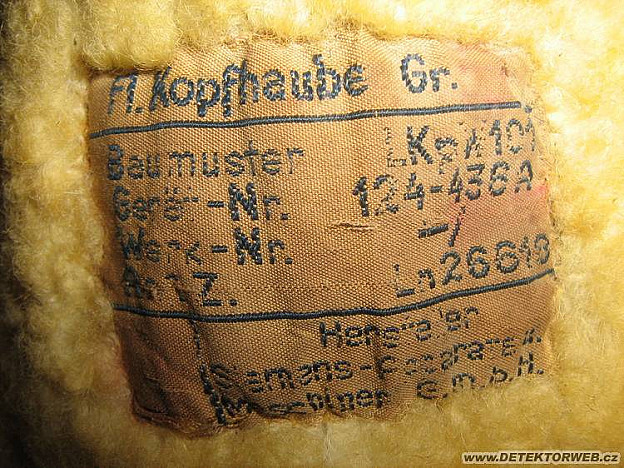 Fl. Kopfhaube Gr.
Baumuster LKpW101
Gerät-Nr. 124-436A
Werk-Nr. -/
Anf. Z. Ln 26619
Hersteller
Siemens-Apparate u.
Maschinen G.m.b.H.
www.DETEKTORWEB.cz